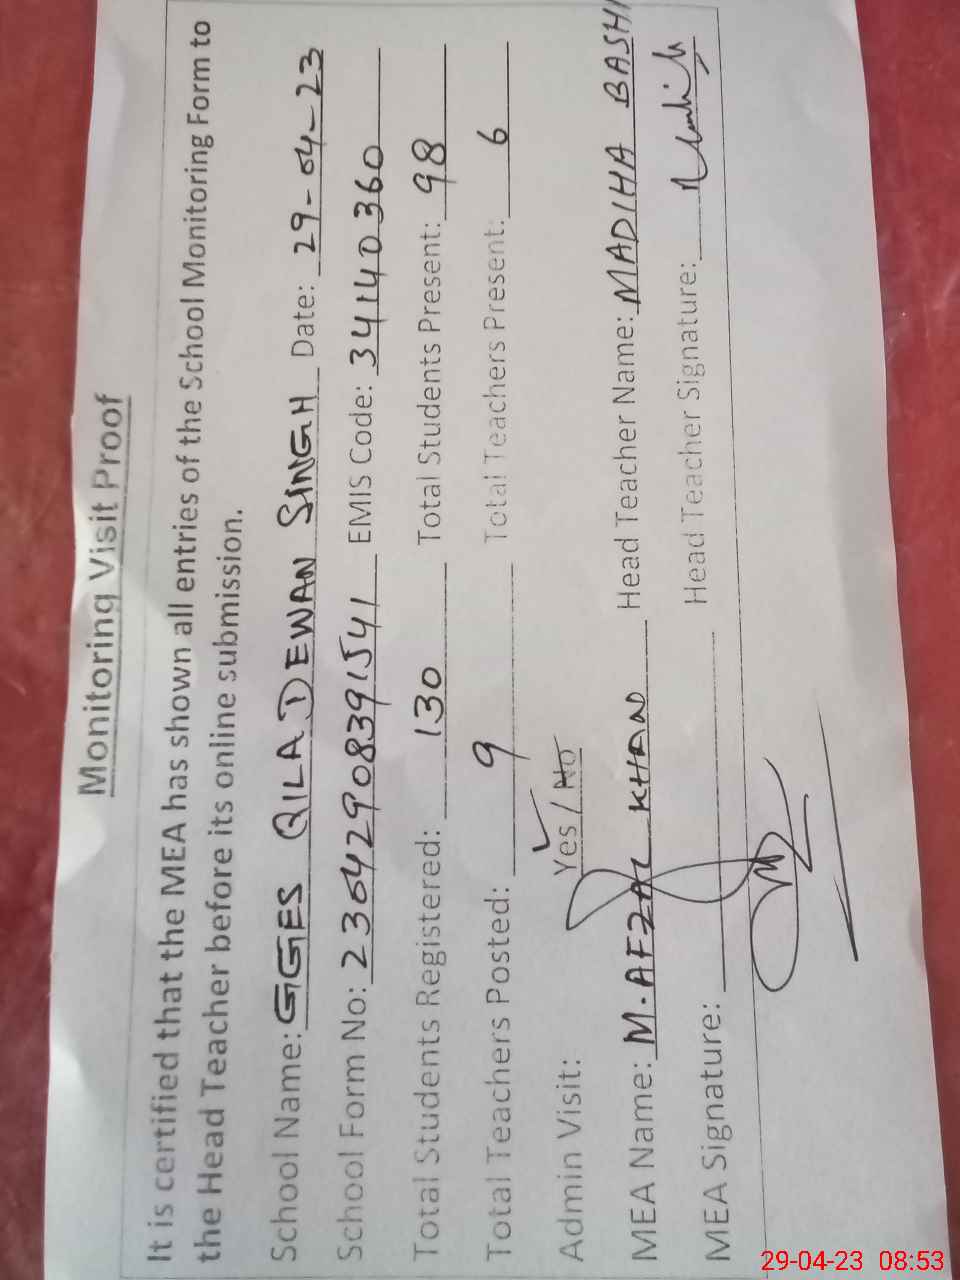 Monitoring Visit Proof
It is certified that the MEA has shown all entries of the School Monitoring Form to
the Head Teacher before its online submission.
School Name: GGES QILA DEWAN SINGH Date: 29-04-23
School Form No: 23042908391541 EMIS Code: 34140360
Total Students Registered: 130 Total Students Present: 98
Total Teachers Posted: 9 Total Teachers Present: 6
Admin Visit: Yes / No
MEA Name: M. AFZAL KHAN Head Teacher Name: MADIHA BASHI
MEA Signature: Head Teacher Signature:
29-04-23 08:53